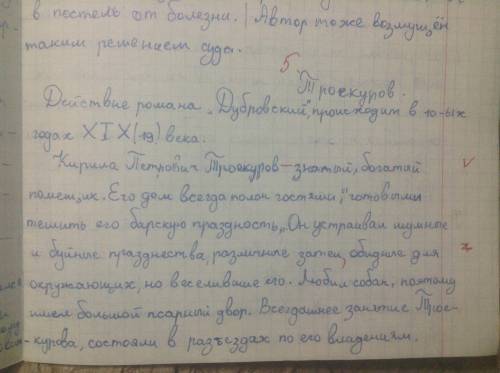 в постель от болезни. | Автор тоже возмущён
таким решением суда.
5
Троекуров.
Действие романа „Дубровский", происходит в 10-ых
годах XIX (19) века.
Кирила Петрович Троекуров — знатый, богатый
помещик. Его дом всегда полон гостями, "готовыми
тешить его барскую праздность„. Он устраивал шумные
и буйные празднества, различные затеи, обидные для
окружающих, но веселившие его. Любил собак, поэтому
имел большой псарный двор. Всегдашнее занятие Трое-
курова, состояли в разъездах по его владениям.